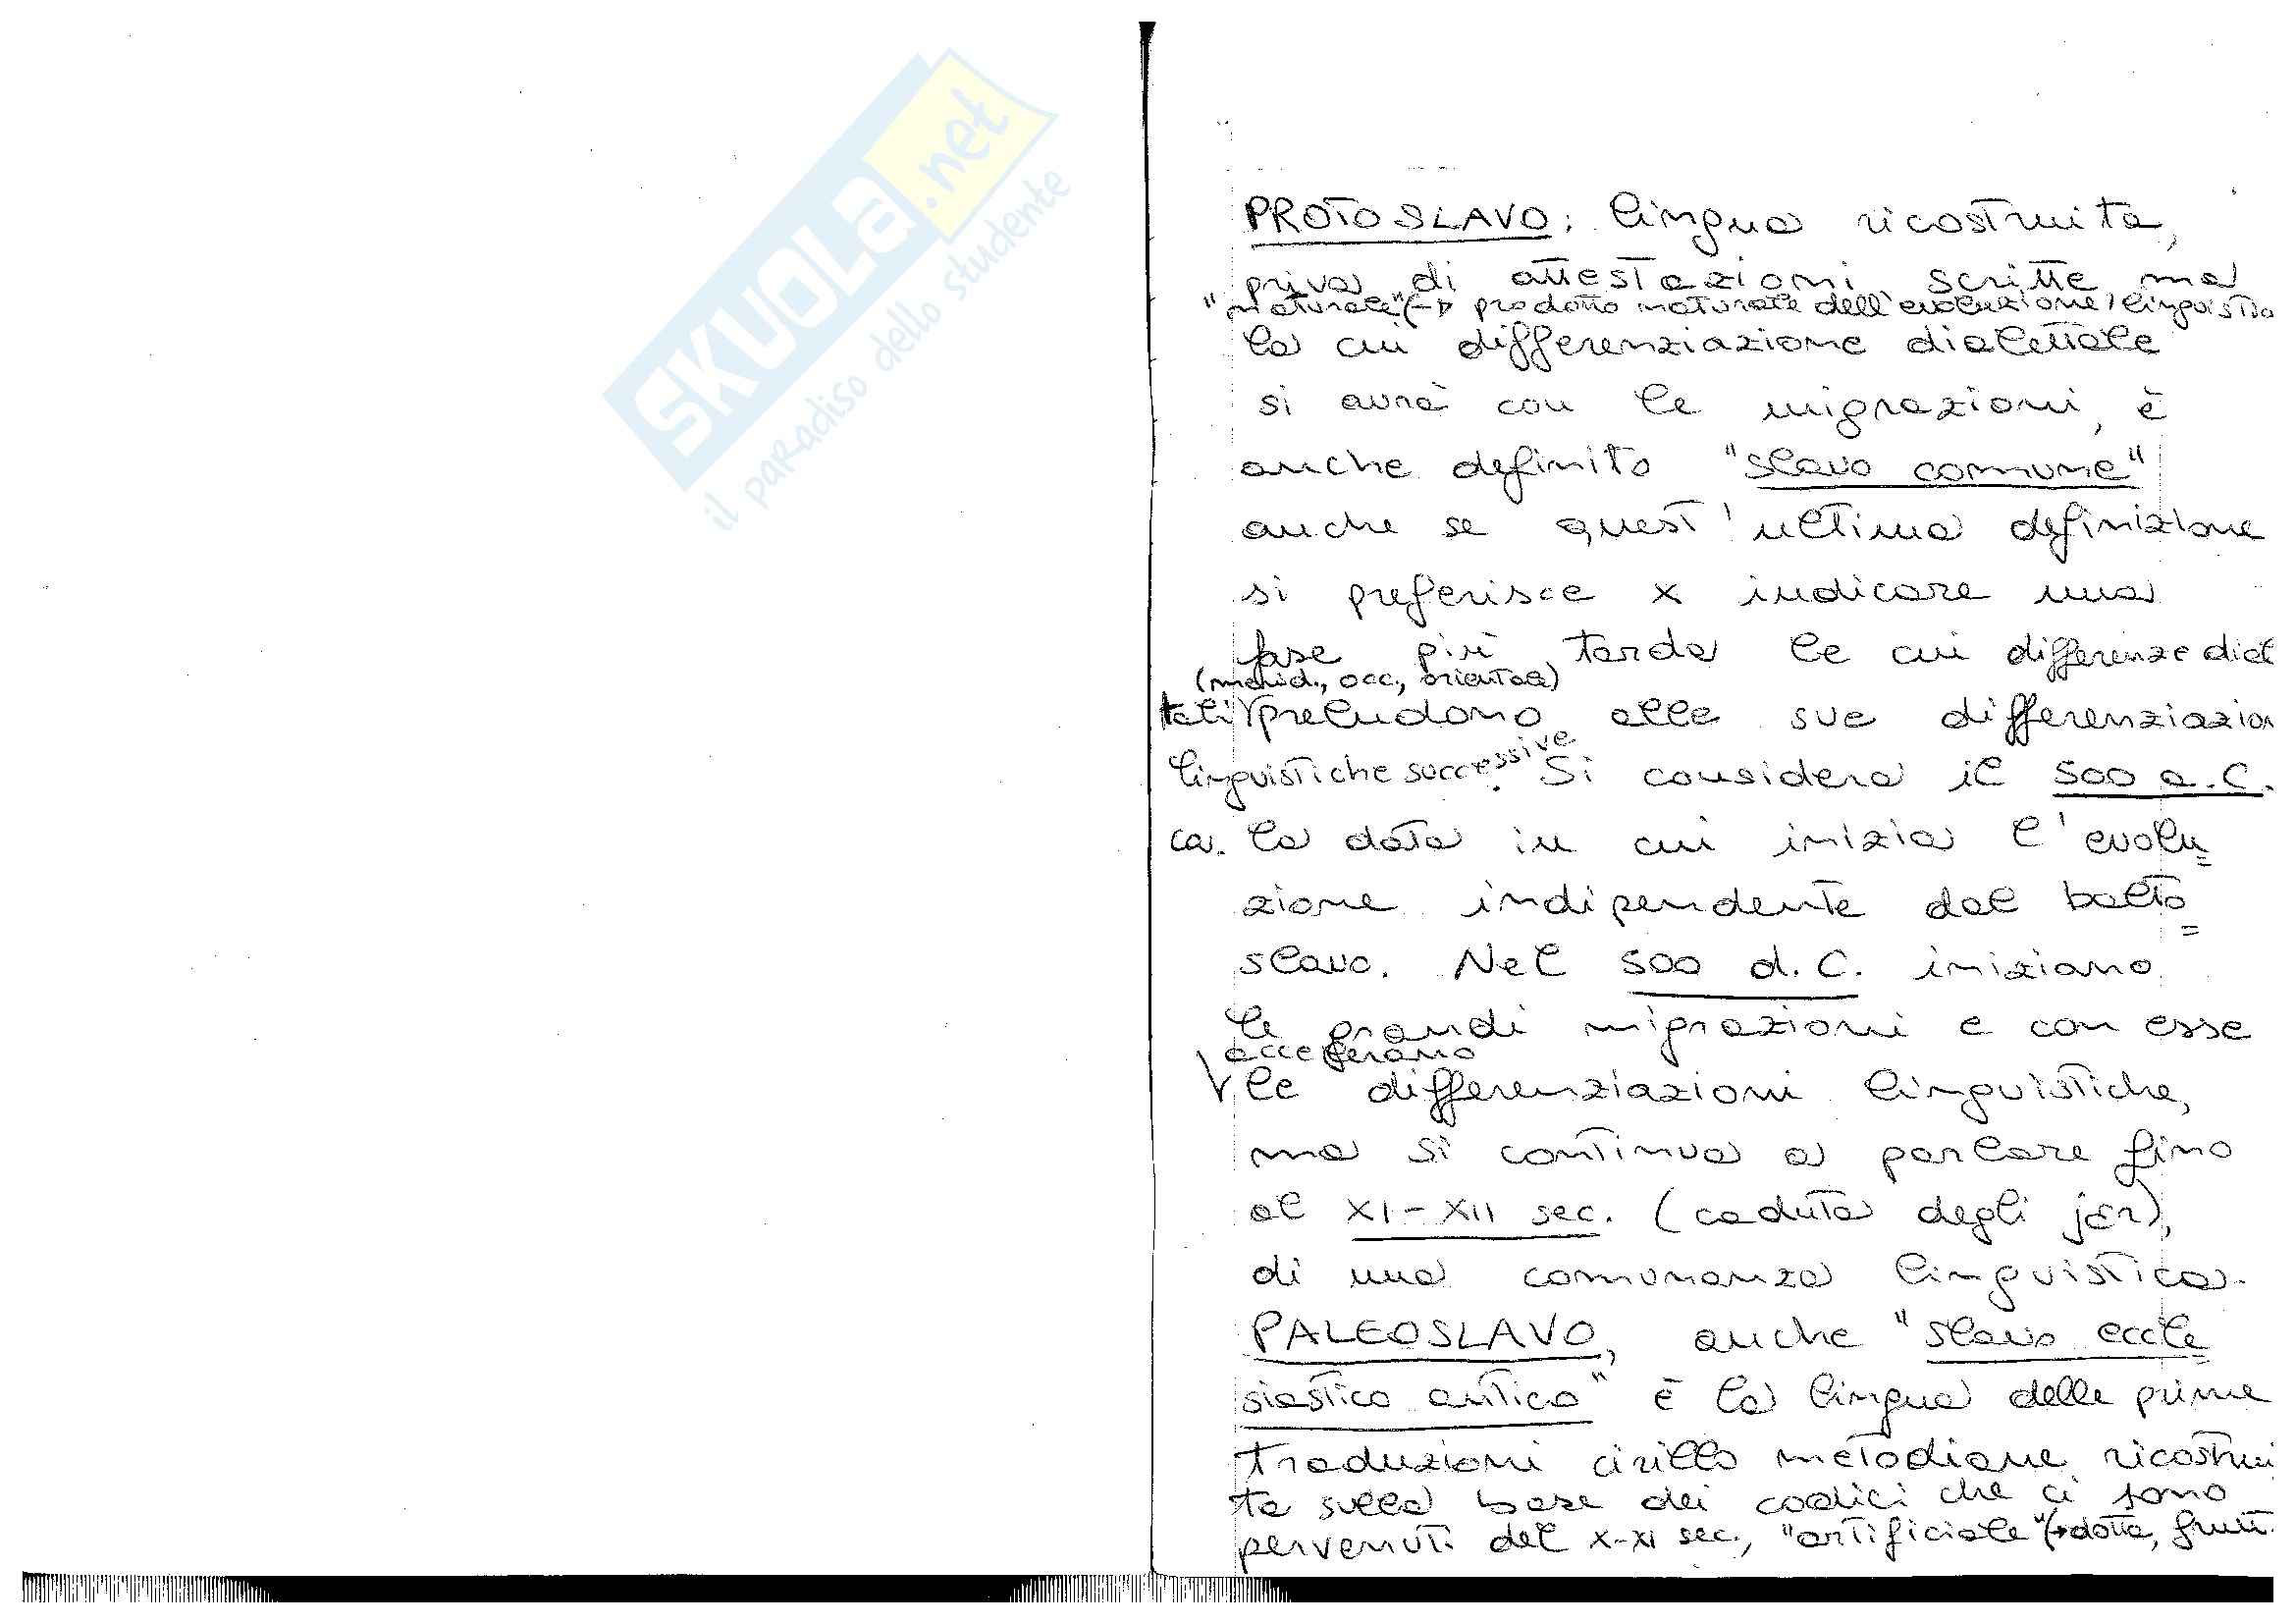 SKUOLA.net
il paradiso dello studente
PROTOSLAVO: lingua ricostruita,
priva di attestazioni scritte ma
"naturale" (→ prodotto naturale dell'evoluzione) linguistica
la cui differenziazione dialettale
si avrà con le migrazioni, è
anche definito "slavo comune"
anche se quest'ultima definizione
si preferisce x indicare una
fase più tarda le cui differenze dial
(merid., occ., orientale)
tali preludono alle sue differenziazion
linguistiche successive. Si considera il 500 a.C.
ca. la data in cui inizia l'evolu=
zione indipendente dal balto=
slavo. Nel 500 d.C. iniziano
le grandi migrazioni e con esse
accelerano
le differenziazioni linguistiche,
ma si continua a parlare fino
al XI-XII sec. (caduta degli jer),
di una comunanza linguistica.
PALEOSLAVO, anche "slavo eccle=
siastico antico" è la lingua delle prime
traduzioni cirillo metodiane ricostrui
ta sulla base dei codici che ci sono
pervenuti del X-XI sec., "artificiale" (→ dotta, frutt